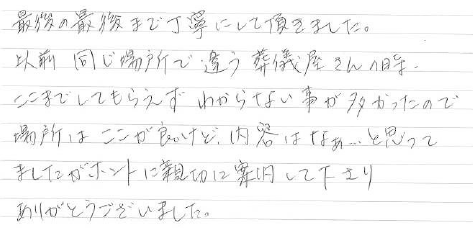 最後の最後まで丁寧にして頂きました。
以前 同じ場所で違う葬儀屋さんの時
ここまでしてもらえず わからない事が多かったので
場所はここが良いけど、内容はなぁ…と思って
ましたがホントに親切に案内して下さり
ありがとうございました。